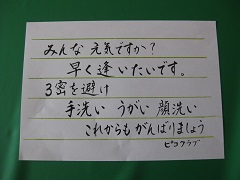 みんな 元気ですか？
早く逢いたいです。
3密を避け
手洗い うがい 顔洗い
これからも がんばりましょう
ピコクラブ